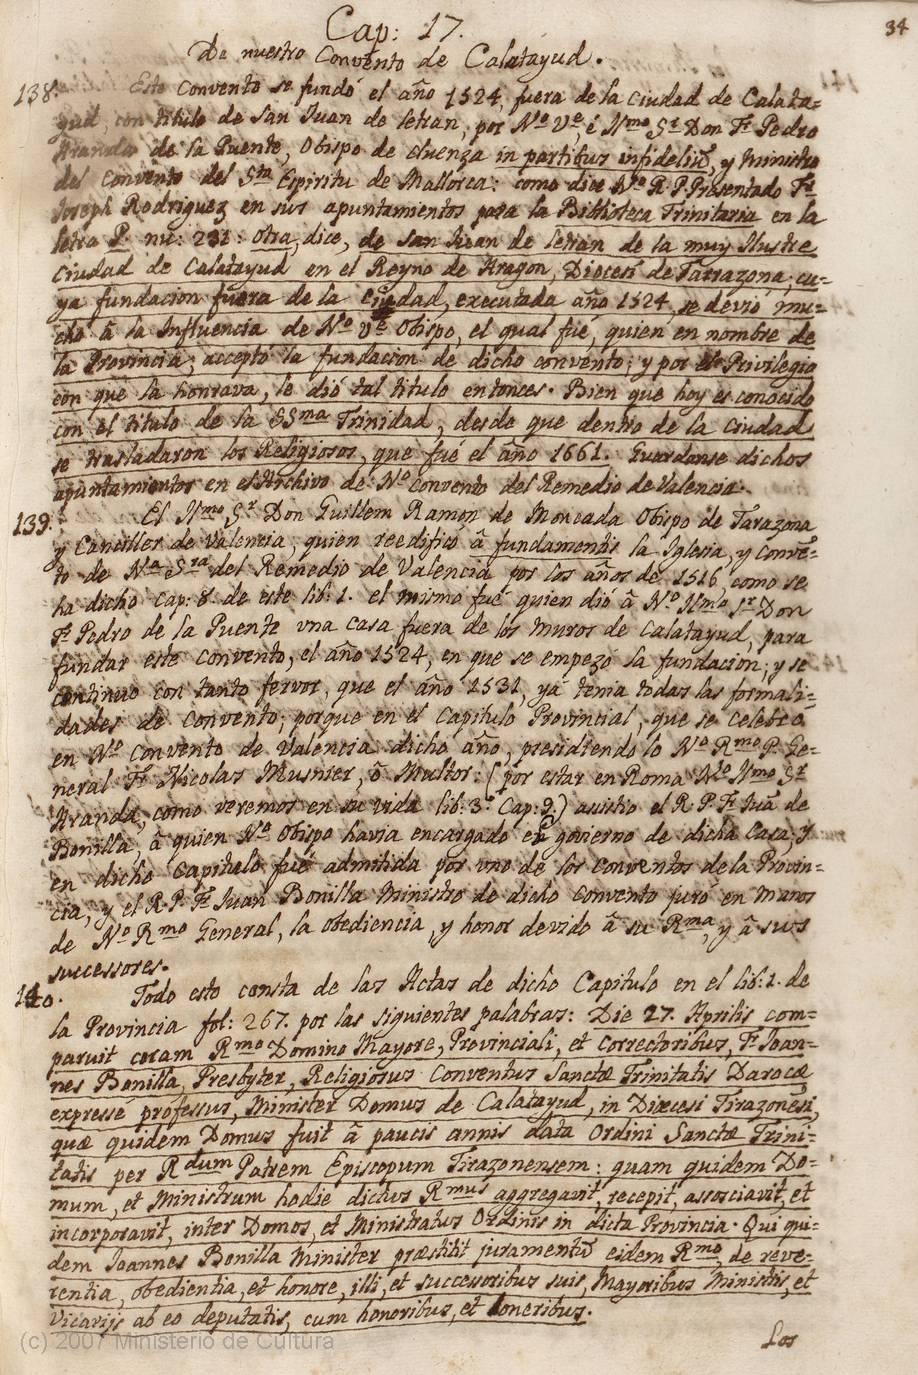 34
Cap: 17.
De nuestro Convento de Calatayud.
138. Este Convento se fundó el año 1524, fuera de la Ciudad de Calata=
yud, con titulo de San Juan de letran, por Nº Vᵉ, é Yllmo Sʳ Don Fʳ Pedro
Aranda de la Puente, Obispo de Auenza in partibus infideliū, y Ministro
del Convento del Sᵗᵒ Espiritu de Mallorca: como dice Nº R. P. Presentado Fʳ
Joseph Rodriguez en sus apuntamientos para la Biblioteca Trinitaria en la
letra P. nu: 231: otra, dice, de San Juan de letran de la muy Ilustre
Ciudad de Calatayud en el Reyno de Aragon, Diocesi de Tarrazona; cu=
ya fundacion fuera de la Ciudad, executada año 1524, se devió mu=
cho â la Influencia de Nº Vᵉ Obispo, el qual fue, quien en nombre de
la Provincia; acceptó la fundacion de dicho convento; y por el Privilegio
con que la honrava, le dió tal titulo entonces. Bien que hoy es conocido
con el titulo de la SSᵐᵃ Trinidad, desde que dentro de la Ciudad
se trasladaron los Religiosos, que fué el año 1661. Guardanse dichos
apuntamientos en el Archivo de Nº Convento del Remedio de Valencia.
139. El Yllmo Sʳ Don Guillem Ramon de Moncada Obispo de Tarazona
y Canciller de Valencia, quien reedificó â fundamentis la Iglesia, y Convē=
to de Nᵃ Sʳᵃ del Remedio de Valencia por los años de 1516 como se
ha dicho cap: 8. de este lib: 1. el mismo fué quien dió â Nº Yllmo Sʳ Don
Fʳ Pedro de la Puente vna casa fuera de los muros de Calatayud, para
fundar este Convento, el año 1524, en que se empezó la fundacion; y se
continuó con tanto fervor, que el año 1531, yá tenia todas las formali=
dades de Convento; porque en el Capitulo Provincial, que se celebró
en Nº Convento de Valencia dicho año, presidiendolo Nº Rᵐᵒ P. Ge=
neral Fʳ Nicolas Musnier, ô Multor: (por estar en Roma Nº Yllmo Sʳ
Aranda, como veremos en su vida lib: 3º Cap: 9.) asistio el R. P. Fʳ Juā de
Bonilla, â quien Nº Obispo havia encargado el govierno de dicha Casa; y
en dicho Capitulo fué admitida por vno de los Conventos de la Provin=
cia, y el R. P. Fʳ Juan Bonilla Ministro de dicho Convento juró en manos
de Nº Rᵐᵒ General, la obediencia, y honor devido â su Rᵐᵃ, y â sus
successores.
140. Todo esto consta de las Actas de dicho Capitulo en el lib: 1. de
la Provincia fol: 267. por las siguientes palabras: Die 27. Aprilis com=
paruit coram Rᵐᵒ Domino Mayore, Provinciali, et Correctoribus, Fʳ Joan=
nes Bonilla, Presbyter, Religiosus Conventus Sanctæ Trinitatis Darocæ
expressé professus, Minister Domus de Calatayud, in Diœcesi Tirazonēsi,
quæ quidem Domus fuit â paucis annis data Ordini Sanctæ Trini=
tatis per Rᵈᵘᵐ Patrem Episcopum Tirazonensem: quam quidem Do=
mum, et Ministrum hodie dictus Rᵐᵘˢ aggregavit, recepit, assosciavit, et
incorporavit, inter Domos, et Ministratus Ordinis in dicta Provincia. Qui qui=
dem Joannes Bonilla Minister præstitit juramentū eidem Rᵐᵒ, de reve=
rentia, obedientia, et honore, illi, et successoribus suis, Mayoribus Ministris, et
Vicarijs ab eo deputatis, cum honoribus, et oneribus.
Los
(c) 2007 Ministerio de Cultura